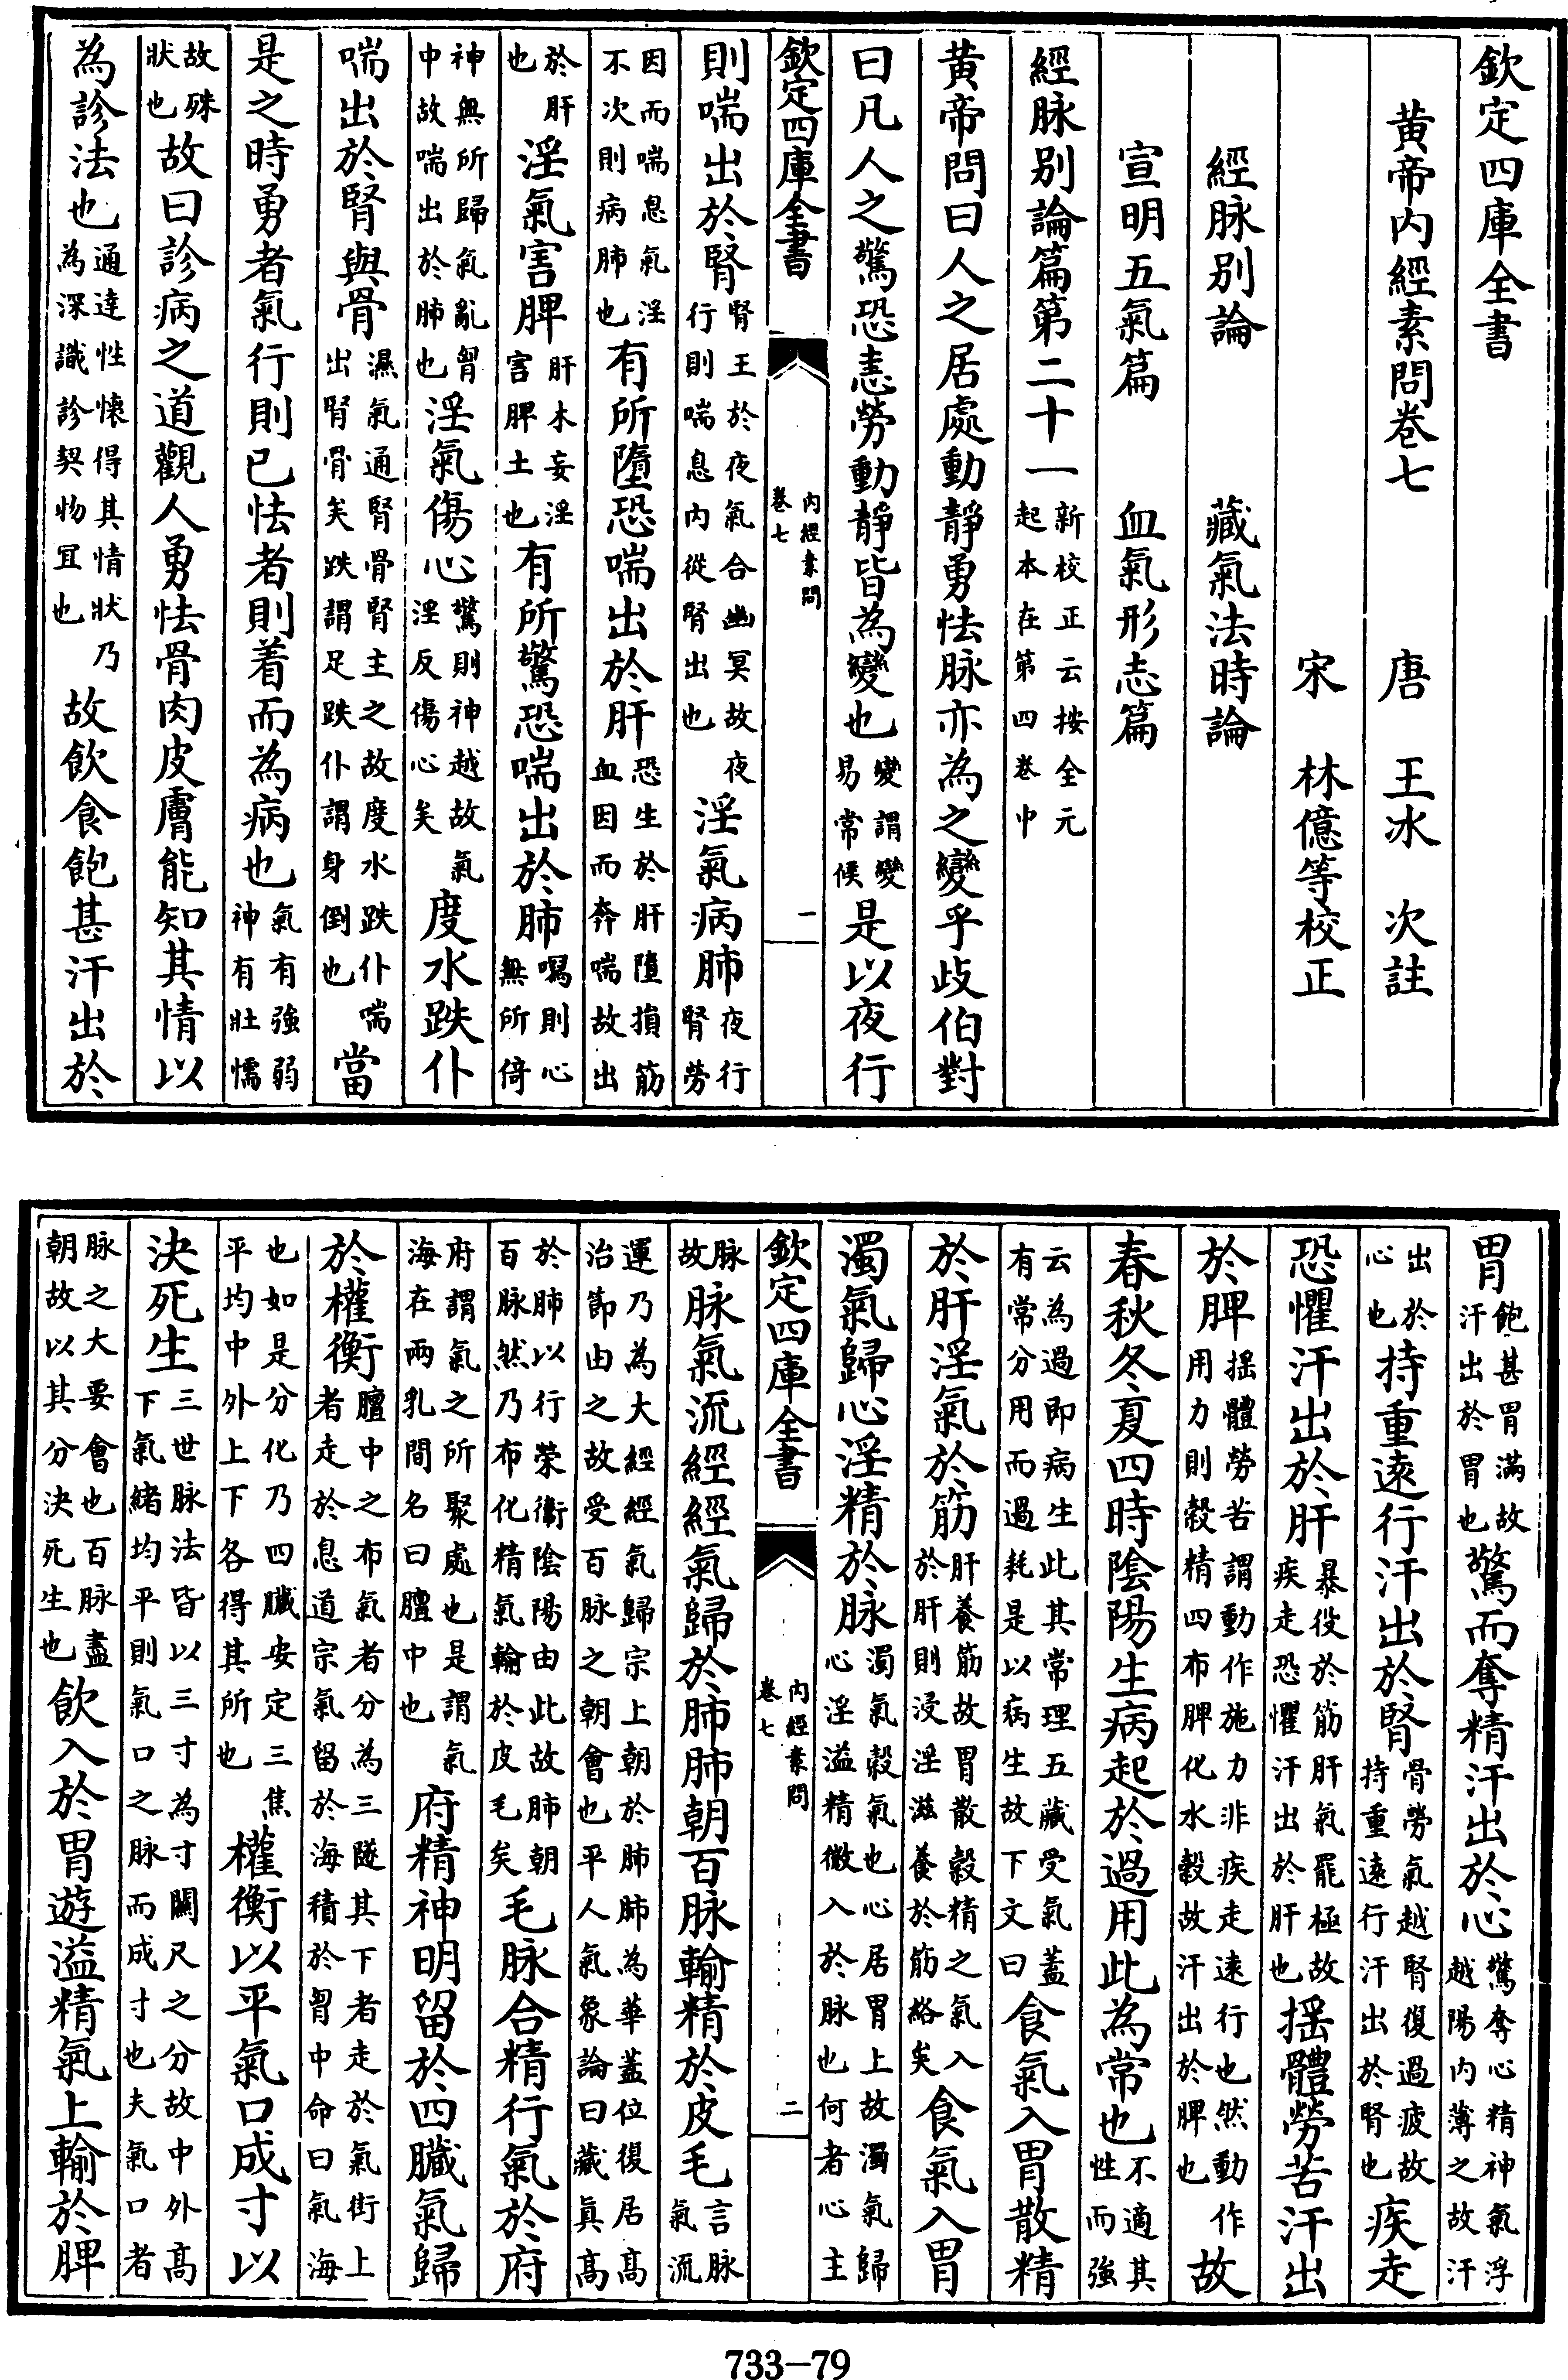 欽定四庫全書
黃帝內經素問卷七
唐 王冰 次註
宋 林億等校正
經脉别論 藏氣法時論
宣明五氣篇 血氣形志篇
經脉别論篇第二十一新校正云按全元起本在第四卷中
黃帝問曰人之居處動靜勇怯脉亦為之變乎歧伯對
曰凡人之驚恐恚勞動靜皆為變也變謂變易常候是以夜行
欽定四庫全書 內經素問卷七 一
則喘出於腎腎王於夜氣合幽冥故夜行則喘息內從腎出也淫氣病肺夜行腎勞
因而喘息氣淫不次則病肺也有所墮恐喘出於肝恐生於肝墮損筋血因而奔喘故出
於肝也淫氣害脾肝木妄淫害脾土也有所驚恐喘出於肺驚則心無所倚
神無所歸氣亂胷中故喘出於肺也淫氣傷心驚則神越故氣淫反傷心矣度水跌仆
喘出於腎與骨濕氣通腎骨腎主之故度水跌仆喘出腎骨矣跌謂足跌仆謂身倒也當
是之時勇者氣行則已怯者則着而為病也氣有強弱神有壯懦
故殊狀也故曰診病之道觀人勇怯骨肉皮膚能知其情以
為診法也通達性懷得其情狀乃為深識診契物宜也故飲食飽甚汗出於
胃飽甚胃滿故汗出於胃也驚而奪精汗出於心驚奪心精神氣浮越陽內薄之故汗
出於心也持重遠行汗出於腎骨勞氣越腎復過疲故持重遠行汗出於腎也疾走
恐懼汗出於肝暴役於筋肝氣罷極故疾走恐懼汗出於肝也揺體勞苦汗出
於脾揺體勞苦謂動作施力非疾走逺行也然動作用力則穀精四布脾化水穀故汗出於脾也故
春秋冬夏四時陰陽生病起於過用此為常也不適其性而強
云為過即病生此其常理五藏受氣蓋有常分用而過耗是以病生故下文曰食氣入胃散精
於肝淫氣於筋肝養筋故胃散穀精之氣入於肝則浸淫滋養於筋絡矣食氣入胃
濁氣歸心淫精於脉濁氣穀氣也心居胃上故濁氣歸心淫溢精微入於脉也何者心主
欽定四庫全書 內經素問卷七 二
脉故脉氣流經經氣歸於肺肺朝百脉輸精於皮毛言脉氣流
運乃為大經經氣歸宗上朝於肺肺為華蓋位復居高治節由之故受百脉之朝會也平人氣象論曰藏真高
於肺以行榮衞陰陽由此故肺朝百脉然乃布化精氣輸於皮毛矣毛脉合精行氣於府
府謂氣之所聚處也是謂氣海在兩乳間名曰膻中也府精神明留於四臟氣歸
於權衡膻中之布氣者分為三隧其下者走於氣街上者走於息道宗氣留於海積於胷中命曰氣海
也如是分化乃四臟安定三焦平均中外上下各得其所也權衡以平氣口成寸以
決死生三世脉法皆以三寸為寸關尺之分故中外高下氣緒均平則氣口之脉而成寸也夫氣口者
脉之大要會也百脉盡朝故以其分決死生也飲入於胃遊溢精氣上輸於脾
733-79